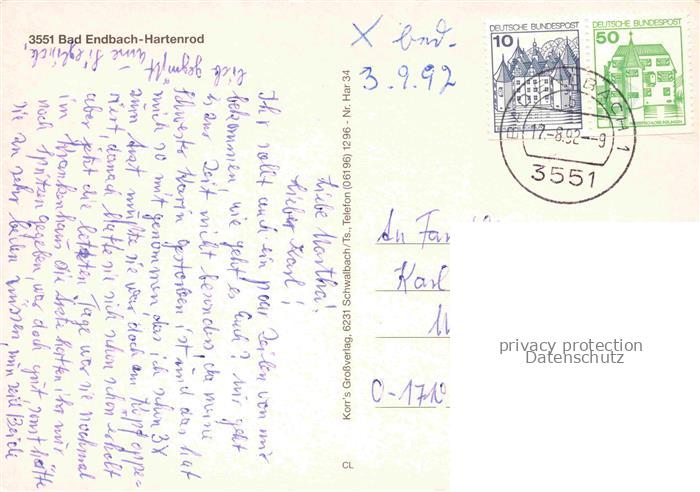 3551 Bad Endbach-Hartenrod
Liebe Martha!
Lieber Karl!
Ihr sollt auch ein paar Zeilen von mir
bekommen, wie geht es Euch? Mir geht
es zur Zeit nicht besonders, da meine
Schwester Karin gestorben ist und das hat
mich so mit genommen, das ich schon 3X
zum Arzt mußte sie war doch am Kopf oppe-
riert, danach hatte sie sich schon schön erholt
aber jetzt die letzten Tage war sie nochmal
im Krankenhaus die Ärzte hatten ihr
noch Spritzen gegeben, war doch gut, sonst hätte
sie zu sehr leiden müssen, nun seid Beide
lieb gegrüßt
- eure Sieglinde
Korr's Großverlag, 6231 Schwalbach/Ts., Telefon (06196) 1296 - Nr. Har 34
CL
X
3.9.92
DEUTSCHE BUNDESPOST
10
DEUTSCHE BUNDESPOST
50
BACH 1
17.-8.92--9
3551
An Fam
Karl
C-171
privacy protection
Datenschutz